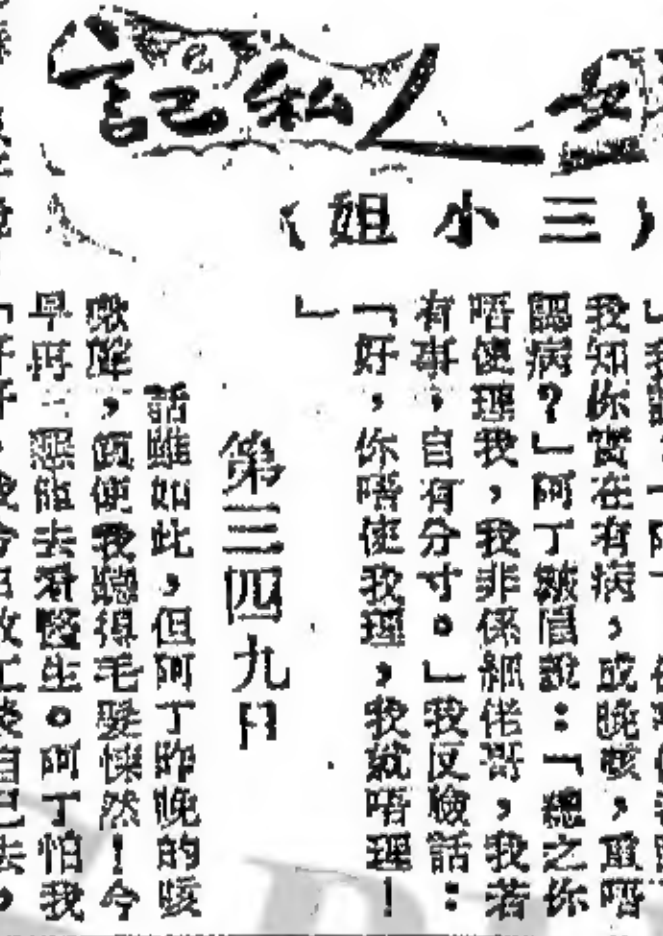 女人私記
(三小姐)
我知你實在有病,成晚咳,重唔
認病?」阿丁皺眉說:「總之你
唔使理我,我非係細佬哥,我若
有事,自有分寸。」我反臉話:
「好,你唔使我理,我就唔理!
」
第三四九日
話雖如此,但阿丁昨晚的咳
嗽聲,頗使我聽得毛髮悚然!今
早再去看醫生。阿丁怕我